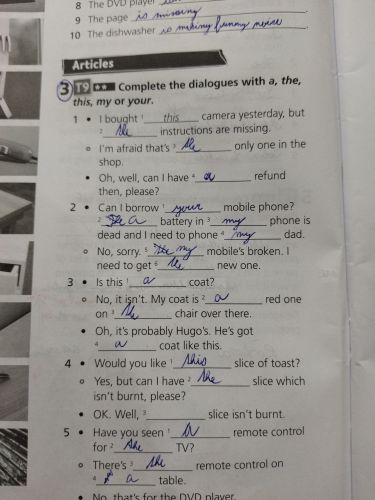 8 The DVD player
9 The page is missing
10 The dishwasher is making funny noise
Articles
3 T9 ★★ Complete the dialogues with a, the,
this, my or your.
1 • I bought ¹ this camera yesterday, but
² the instructions are missing.
○ I'm afraid that's ³ the only one in the
shop.
• Oh, well, can I have ⁴ a refund
then, please?
2 • Can I borrow ¹ your mobile phone?
² a battery in ³ my phone is
dead and I need to phone ⁴ my dad.
○ No, sorry. ⁵ my mobile's broken. I
need to get ⁶ the new one.
3 • Is this ¹ a coat?
○ No, it isn't. My coat is ² a red one
on ³ the chair over there.
• Oh, it's probably Hugo's. He's got
⁴ a coat like this.
4 • Would you like ¹ this slice of toast?
○ Yes, but can I have ² the slice which
isn't burnt, please?
• OK. Well, ³ slice isn't burnt.
5 • Have you seen ¹ a remote control
for ² the TV?
○ There's ³ the remote control on
⁴ a table.
• No, that's for the DVD player.